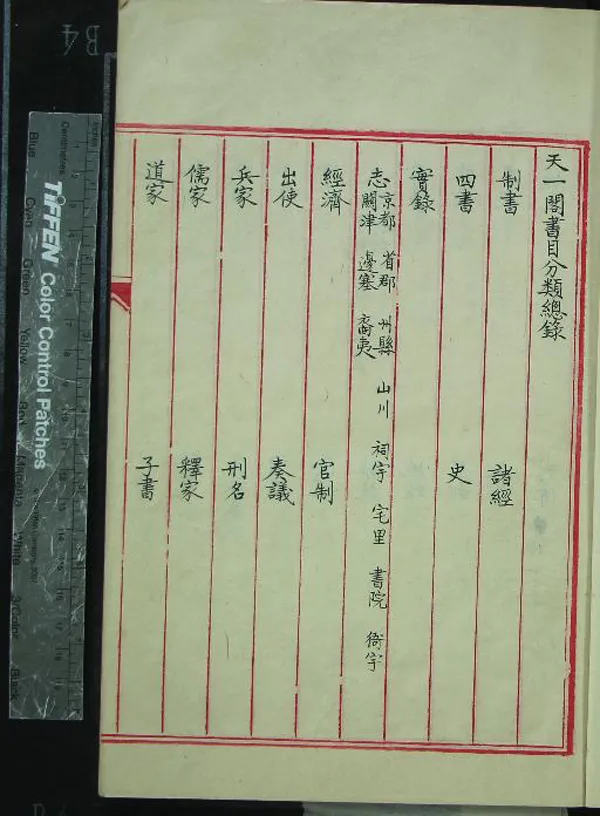 天一閣書目分類總錄
制書 諸經
四書 史
實錄
志 京都 省郡 州縣 山川 祠宇 宅里 書院 衙宇 關津 邊塞 裔夷
經濟 官制
出使 奏議
兵家 刑名
儒家 釋家
道家 子書
B4
Inches
Centimetres
TIFFEN Color Control Patches
Blue
Cyan
Green
Yellow
Red
Magenta
White
3/Color
Black